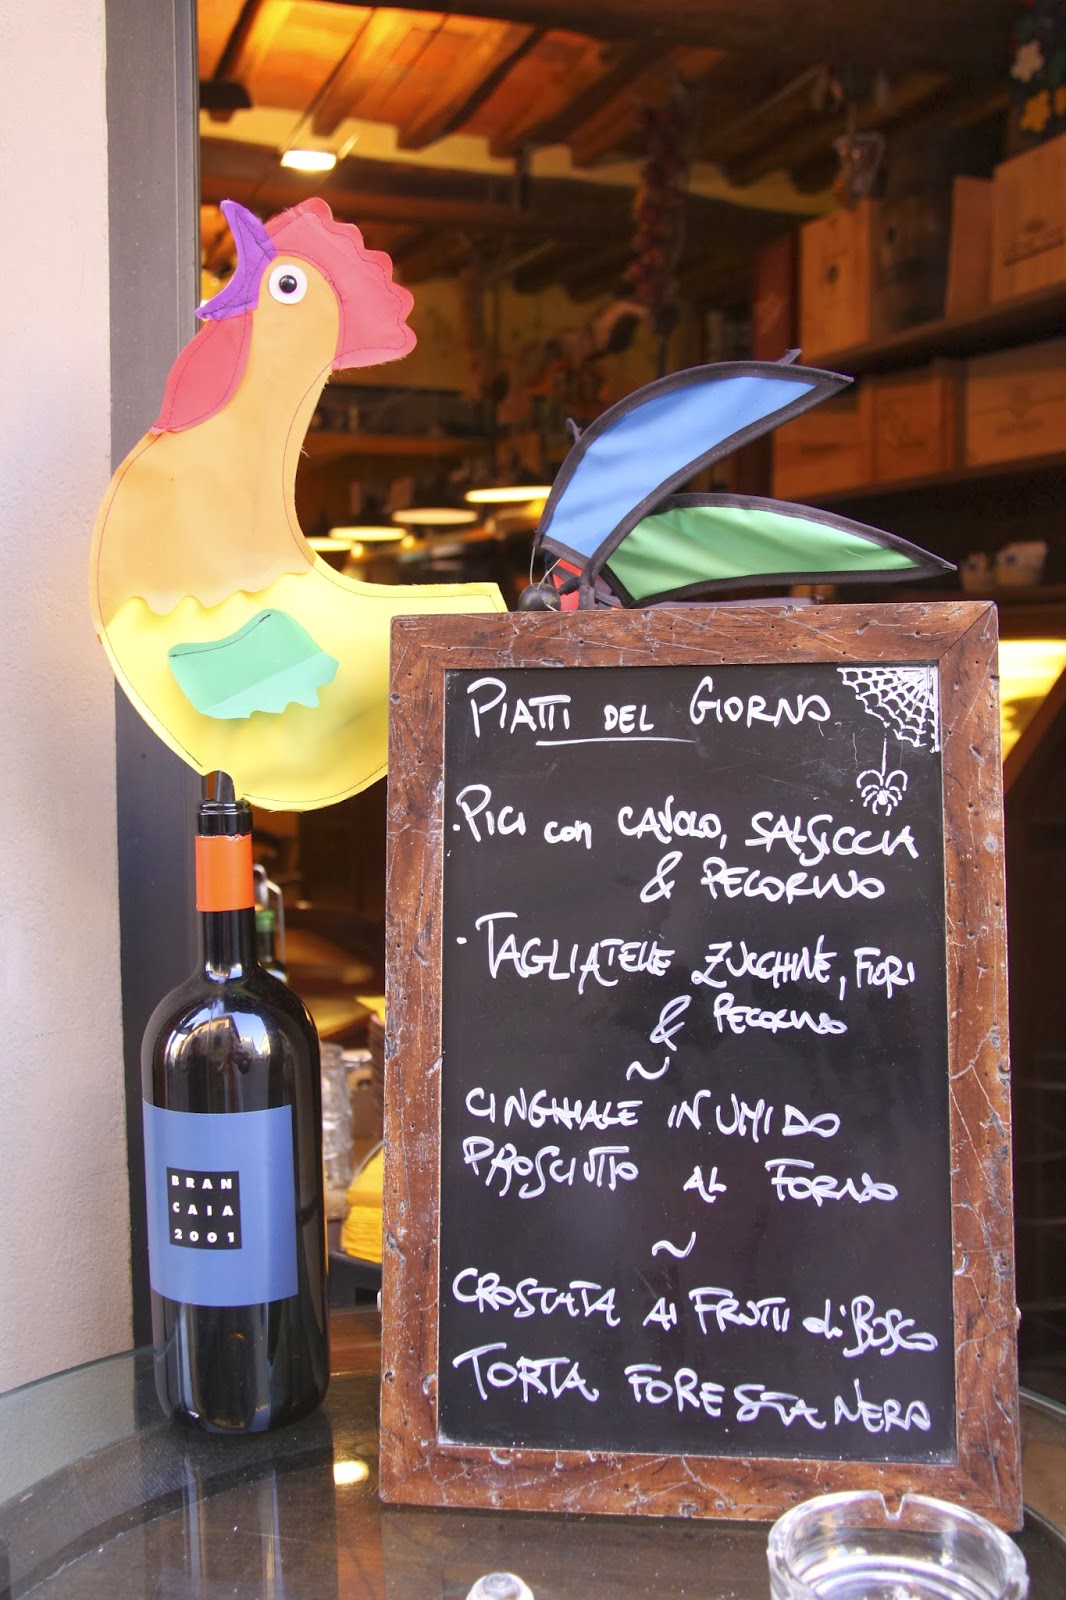 PIATTI DEL GIORNO
· PICI con CAVOLO, SALSICCIA
& PECORINO
· TAGLIATELLE ZUCCHINE, FIORI
& PECORINO
~
CINGHIALE IN UMIDO
PROSCIUTTO AL FORNO
~
CROSTATA AI FRUTTI di BOSCO
TORTA FORESTA NERA
BRAN
CAIA
2001